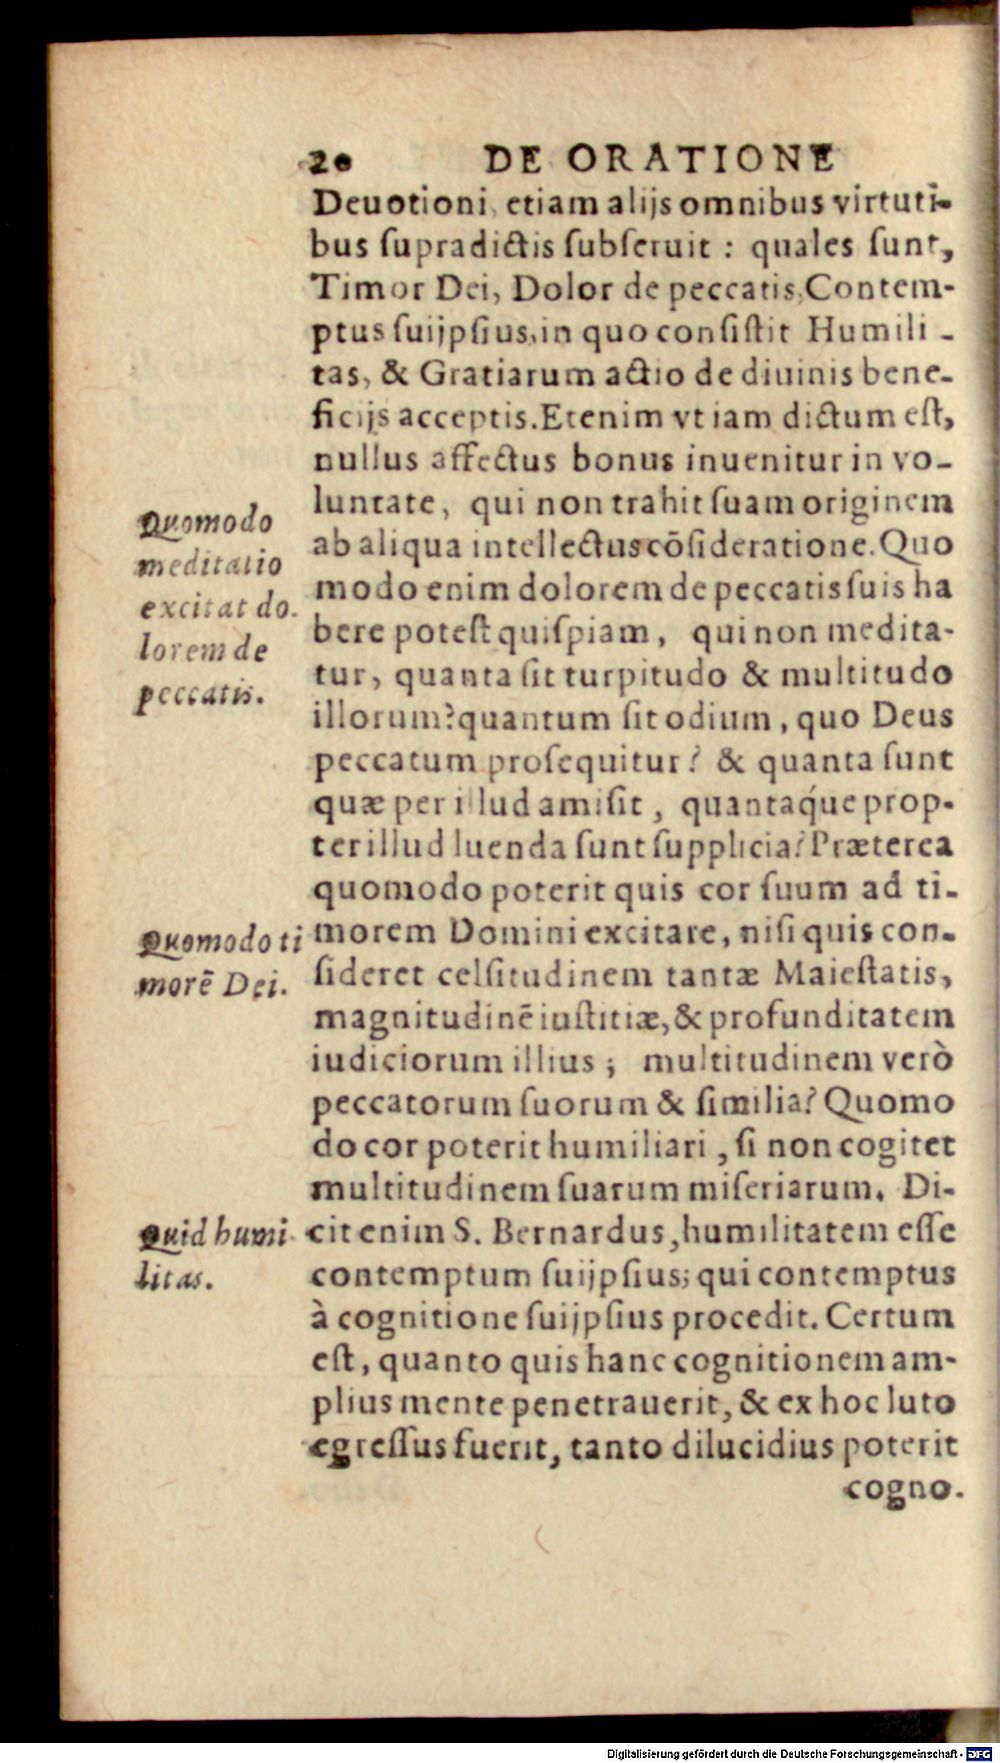 20 DE ORATIONE
Deuotioni, etiam alijs omnibus virtuti-
bus ſupradictis ſubſeruit : quales ſunt,
Timor Dei, Dolor de peccatis, Contem-
ptus ſuijpſius, in quo conſiſtit Humili-
tas, & Gratiarum actio de diuinis bene-
ficijs acceptis. Etenim vt iam dictum eſt,
nullus affectus bonus inuenitur in vo-
luntate, qui non trahit ſuam originem
ab aliqua intellectus cōſideratione. Quo
modo enim dolorem de peccatis ſuis ha
bere poteſt quiſpiam, qui non medita-
tur, quanta ſit turpitudo & multitudo
illorum? quantum ſit odium, quo Deus
peccatum proſequitur? & quanta ſunt
quæ per illud amiſit, quantaq́ue prop-
ter illud luenda ſunt ſupplicia? Præterea
quomodo poterit quis cor ſuum ad ti-
morem Domini excitare, niſi quis con-
ſideret celſitudinem tantæ Maieſtatis,
magnitudinē iuſtitiæ, & profunditatem
iudiciorum illius ; multitudinem verò
peccatorum ſuorum & ſimilia? Quomo
do cor poterit humiliari, ſi non cogitet
multitudinem ſuarum miſeriarum. Di-
cit enim S. Bernardus, humilitatem eſſe
contemptum ſuijpſius; qui contemptus
à cognitione ſuijpſius procedit. Certum
eſt, quanto quis hanc cognitionem am-
plius mente penetrauerit, & ex hoc luto
egreſſus fuerit, tanto dilucidius poterit
cogno-
Quomodo
meditatio
excitat do-
lorem de
peccatis.
Quomodo ti
morē Dei.
Quid humi
litas.
Digitalisierung gefördert durch die Deutsche Forschungsgemeinschaft - DFG